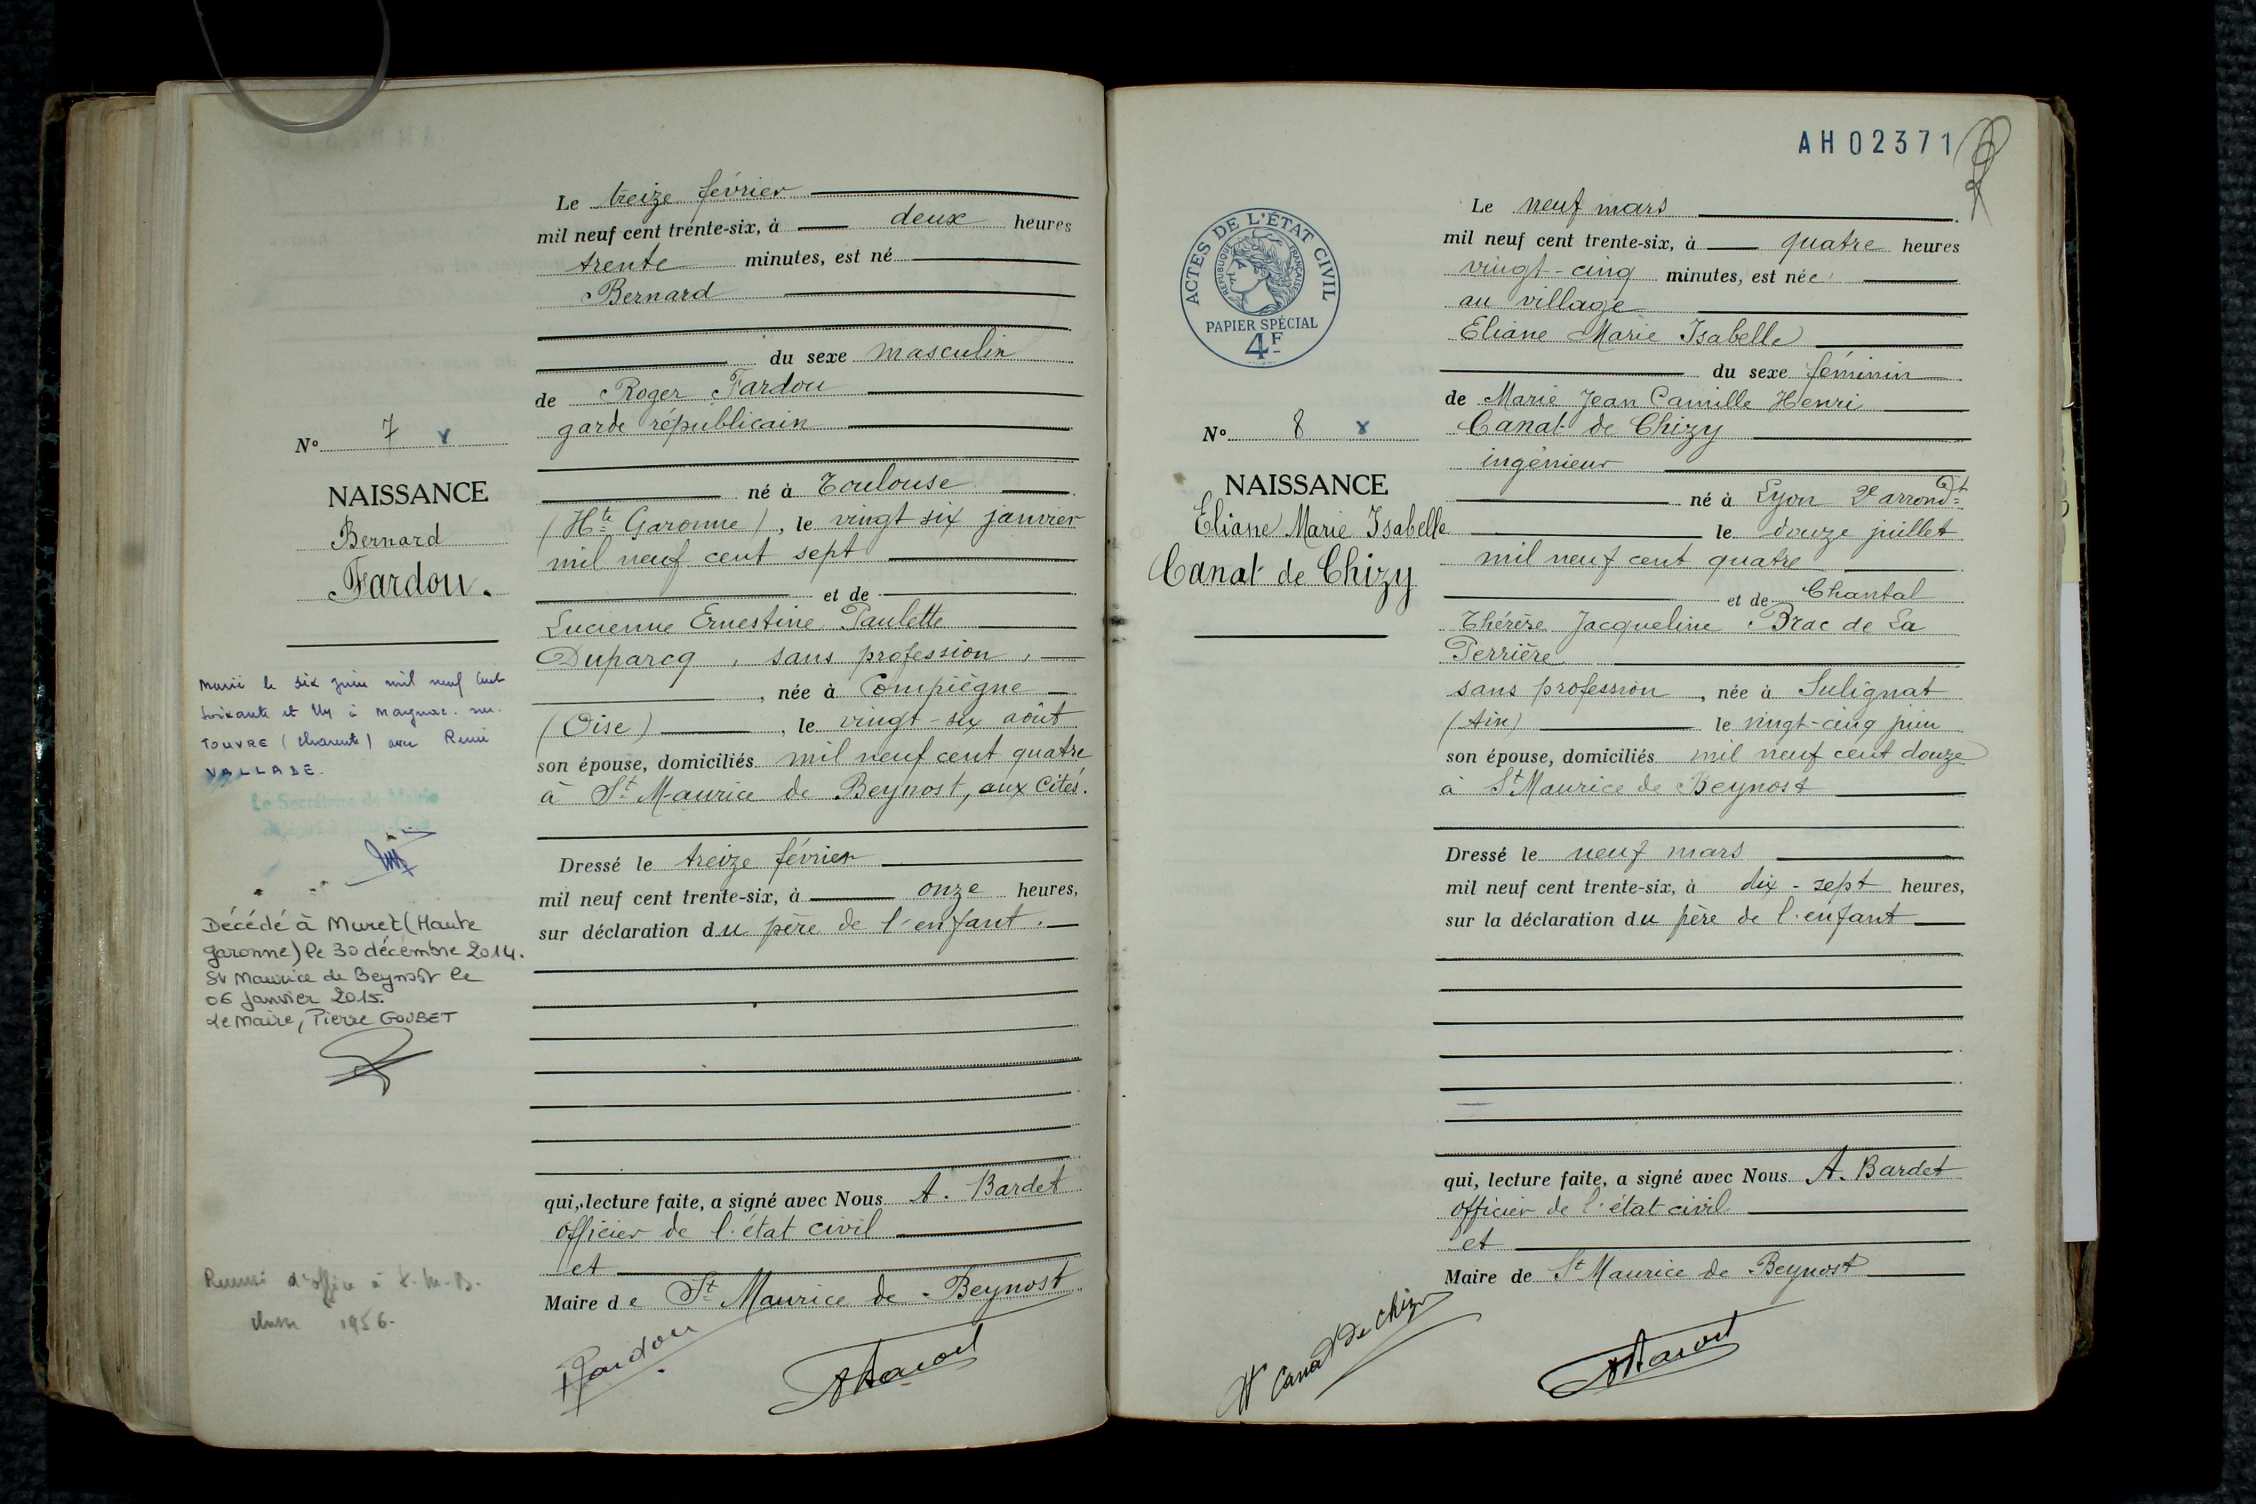 Le treize février
mil neuf cent trente-six, à deux heures
trente minutes, est né
Bernard
du sexe masculin
de Roger Fardou
garde républicain
né à Toulouse
(Hte Garonne), le vingt six janvier
mil neuf cent sept
et de
Lucienne Ernestine Paulette
Duparcq, sans profession,
, née à Compiègne
(Oise), le vingt-six août
son épouse, domiciliés mil neuf cent quatre
à St Maurice de Beynost, aux Cités.
Dressé le treize février
mil neuf cent trente-six, à onze heures,
sur déclaration du père de l'enfant.
qui, lecture faite, a signé avec Nous A. Bardet
officier de l'état civil
et
Maire de St Maurice de Beynost
Fardou
N° 7
NAISSANCE
Bernard
Fardou.
Marié le six juin mil neuf cent
soixante et un à Magnac-sur-
TOUVRE (Charente) avec
VALLADE.
Le Secrétaire de Mairie
Décédé à Muret (Haute
garonne) le 30 décembre 2014.
St Maurice de Beynost le
06 janvier 2015.
Le Maire, Pierre GOUBET
d'office à
classe 1956.
AH02371
ACTES DE L'ÉTAT CIVIL
RÉPUBLIQUE FRANÇAISE
PAPIER SPÉCIAL
4F
N° 8
NAISSANCE
Eliane Marie Isabelle
Canat de Chizy
Le neuf mars
mil neuf cent trente-six, à quatre heures
vingt-cinq minutes, est née
au village
Eliane Marie Isabelle
du sexe féminin
de Marie Jean Camille Henri
Canat de Chizy
ingénieur
né à Lyon 2e arrondt
le douze juillet
mil neuf cent quatre
et de Chantal
Thérèse Jacqueline Brac de La
Perrière
sans profession, née à Sulignat
(Ain) le vingt-cinq juin
son épouse, domiciliés mil neuf cent douze
à St Maurice de Beynost
Dressé le neuf mars
mil neuf cent trente-six, à dix-sept heures,
sur la déclaration du père de l'enfant
qui, lecture faite, a signé avec Nous A. Bardet
officier de l'état civil
et
Maire de St Maurice de Beynost
H Canat de Chizy